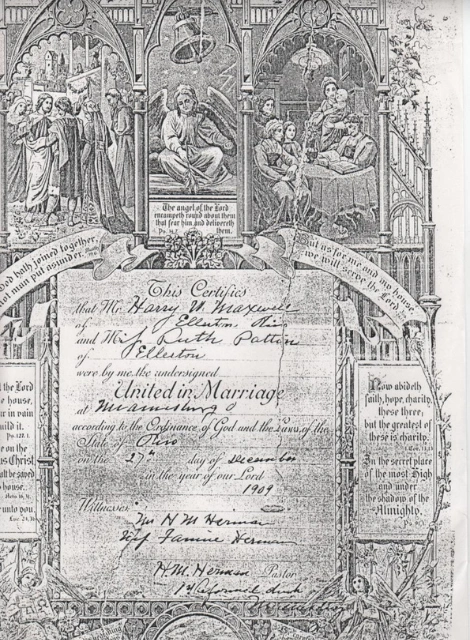 The angel of the Lord
encampeth round about them
that fear him and delivereth
them.
God hath joined together,
not man put asunder.
But as for me and my house,
we will serve the Lord.
This Certifies
that Mr. Harry W. Maxwell
of Ellerton, Ohio
and Miss Ruth Patton
of Ellerton
were by me the undersigned
United in Marriage
at Miamisburg O
according to the Ordinance of God and the Laws of the
State of Ohio
on the 27th day of December
in the year of our Lord
1909
Witnesses
Mr H M Herman
Miss Fannie Herman
H. M. Herman Pastor
1st Reformed
the Lord
house,
in vain
build it.
Ps. 127. 1.
on the
Christ
shall be saved
house.
unto you.
Now abideth
faith, hope, charity,
these three;
but the greatest of
these is charity.
In the secret place
of the most High
and under
the shadow of the
Almighty.